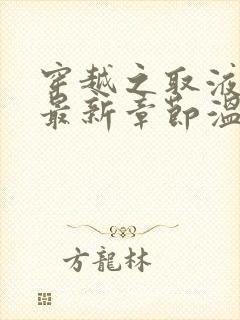 穿越之取液
最新章節溫
方龍林